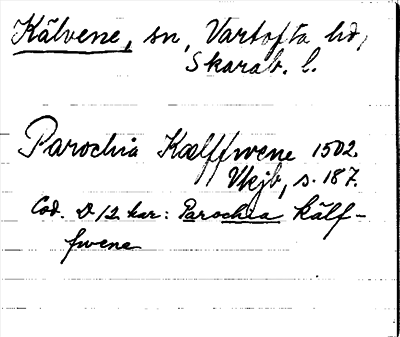 Kälvene, sn, Vartofta hd,
Skarab. l.
Parochia Kælffwene 1502.
Vkjb, s. 187.
Cod. D 12 har: Parochia Kälf-
fwene